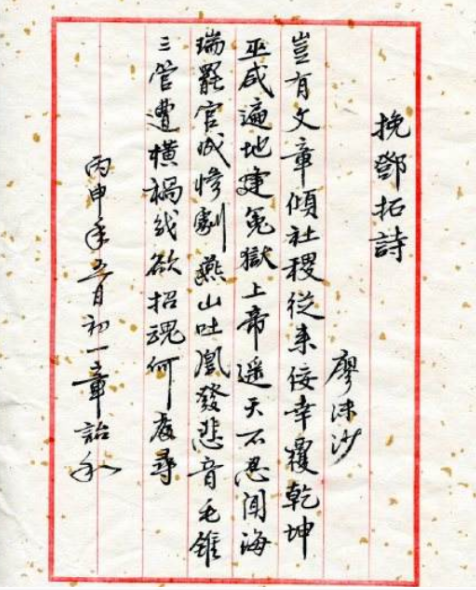 挽鄧拓詩
廖沫沙
豈有文章傾社稷從来佞幸覆乾坤
巫咸遍地建冤獄上帝遥天不忍闻海
瑞罷官成惨劇燕山吐鳳發悲音毛錐
三管遭横禍我欲招魂何處尋
丙申年五月初一章詒和